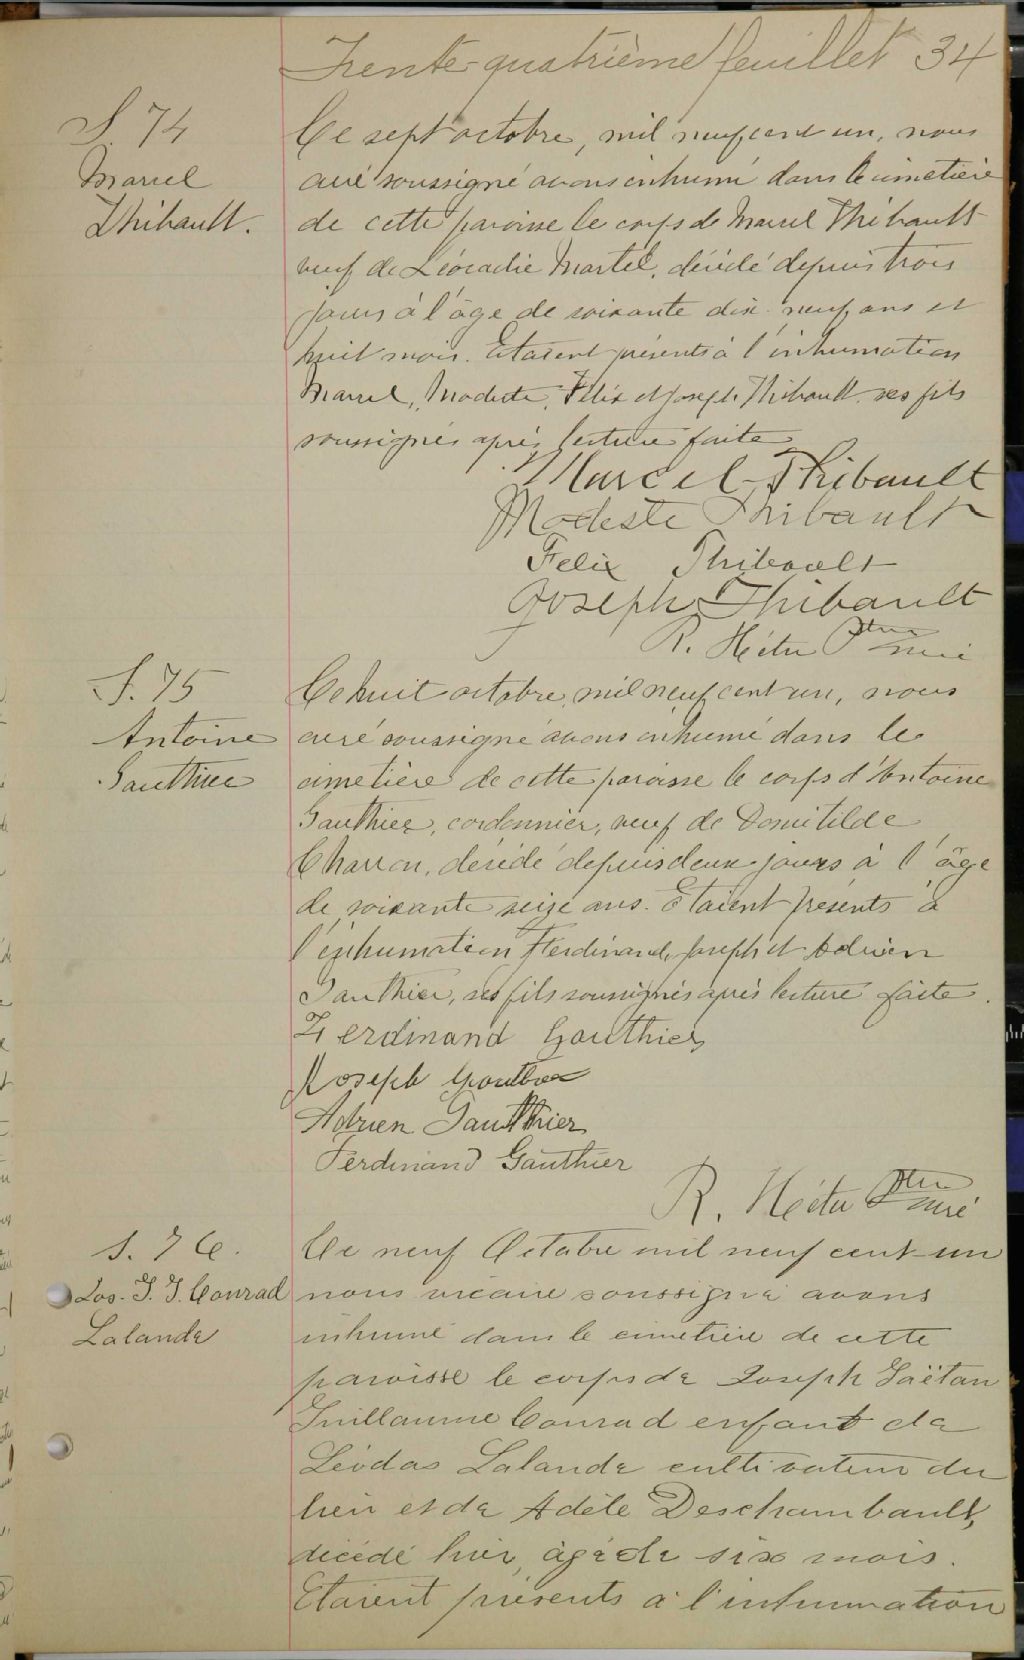 Trente-quatrième feuillet 34
S. 74
Marcel
Thibault.
Ce sept octobre, mil neuf cent un, nous
curé soussigné avons inhumé dans le cimetière
de cette paroisse le corps de Marcel Thibault
veuf de Léocadie Martel, décédé depuis trois
jours à l'âge de soixante dix-neuf ans et
huit mois. Etaient présents à l'inhumation
Marcel, Modeste, Félix et Joseph Thibault ses fils
soussignés après lecture faite
Marcel Thibault
Modeste Thibault
Felix Thibault
Joseph Thibault
R. Hétu Ptre curé
S. 75
Antoine
Gauthier
Ce huit octobre, mil neuf cent un, nous
curé soussigné avons inhumé dans le
cimetière de cette paroisse le corps d'Antoine
Gauthier, cordonnier, veuf de Domitilde
Charron, décédé depuis deux jours à l'âge
de soixante seize ans. Etaient présents à
l'inhumation Ferdinand, Joseph et Adrien
Gauthier, ses fils soussignés après lecture faite.
Ferdinand Gauthier
Joseph Gauthier
Adrien Gauthier
Ferdinand Gauthier
R. Hétu Ptre curé
S. 76.
Jos. G. G. Conrad
Lalande
Ce neuf Octobre mil neuf cent un
nous vicaire soussigné avons
inhumé dans le cimetière de cette
paroisse le corps de Joseph Gaëtan
Guillaume Conrad enfant de
Léodas Lalande cultivateur du
lieu et de Adèle Deschambault,
décédé hier, âgé de six mois.
Etaient présents à l'inhumation